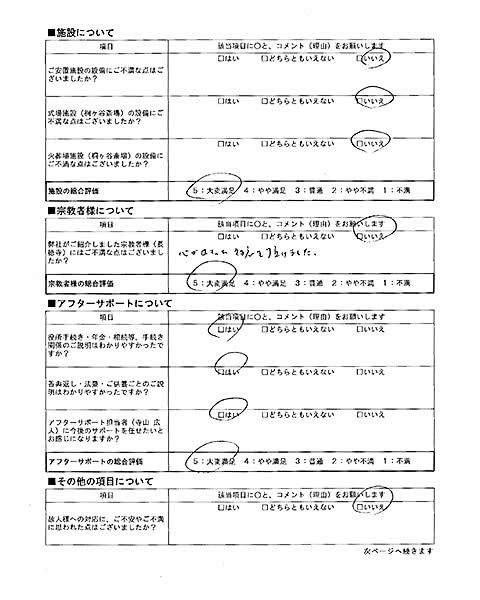 ■施設について
項目 該当項目に○と、コメント（理由）をお願いします
□はい □どちらともいえない □いいえ
ご安置施設の設備にご不満な点はご
ざいましたか？
□はい □どちらともいえない □いいえ
式場施設（桐ヶ谷斎場）の設備にご
不満な点はございましたか？
□はい □どちらともいえない □いいえ
火葬場施設（桐ヶ谷斎場）の設備に
ご不満な点はございましたか？
施設の総合評価 5：大変満足 4：やや満足 3：普通 2：やや不満 1：不満
■宗教者様について
項目 該当項目に○と、コメント（理由）をお願いします
□はい □どちらともいえない □いいえ
弊社がご紹介しました宗教者様（長
徳寺）にはご不満な点はございまし
たか？
宗教者様の総合評価 5：大変満足 4：やや満足 3：普通 2：やや不満 1：不満
■アフターサポートについて
項目 該当項目に○と、コメント（理由）をお願いします
□はい □どちらともいえない □いいえ
役所手続き・年金・相続等、手続き
関係のご説明はわかりやすかったで
すか？
□はい □どちらともいえない □いいえ
香典返し・法要・ご供養ごとのご説
明はわかりやすかったですか？
□はい □どちらともいえない □いいえ
アフターサポート担当者（寺山 広
人）に今後のサポートを任せたいと
お感じになりますか？
アフターサポートの総合評価 5：大変満足 4：やや満足 3：普通 2：やや不満 1：不満
■その他の項目について
項目 該当項目に○と、コメント（理由）をお願いします
□はい □どちらともいえない □いいえ
故人様への対応に、ご不安やご不満
に思われた点はございましたか？
次ページへ続きます